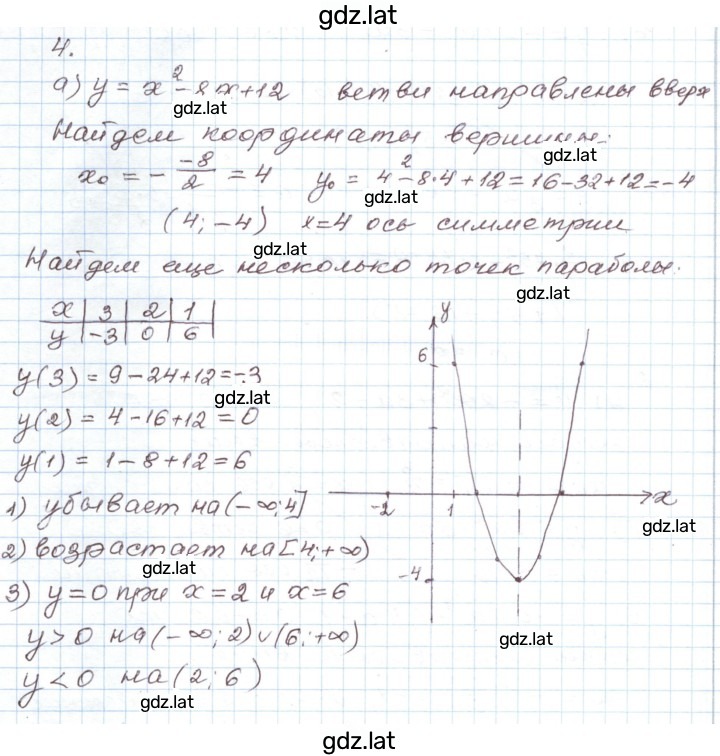 gdz.lat
4.
а) y = x² - 8x + 12 ветви направлены вверх
gdz.lat
Найдем координаты вершины:
gdz.lat
x₀ = - -8/2 = 4 y₀ = 4² - 8·4 + 12 = 16 - 32 + 12 = -4
gdz.lat
(4; -4) x=4 ось симметрии
gdz.lat
Найдем еще несколько точек параболы:
gdz.lat
x | 3 | 2 | 1 |
y | -3 | 0 | 6 |
y(3) = 9 - 24 + 12 = -3
gdz.lat
y(2) = 4 - 16 + 12 = 0
y(1) = 1 - 8 + 12 = 6
1) убывает на (-∞; 4]
2) возрастает на [4; +∞)
gdz.lat
3) y = 0 при x = 2 и x = 6
y > 0 на (-∞; 2) ∪ (6; +∞)
y < 0 на (2; 6)
gdz.lat
y
6
-2 1 x
gdz.lat
-4
gdz.lat
gdz.lat